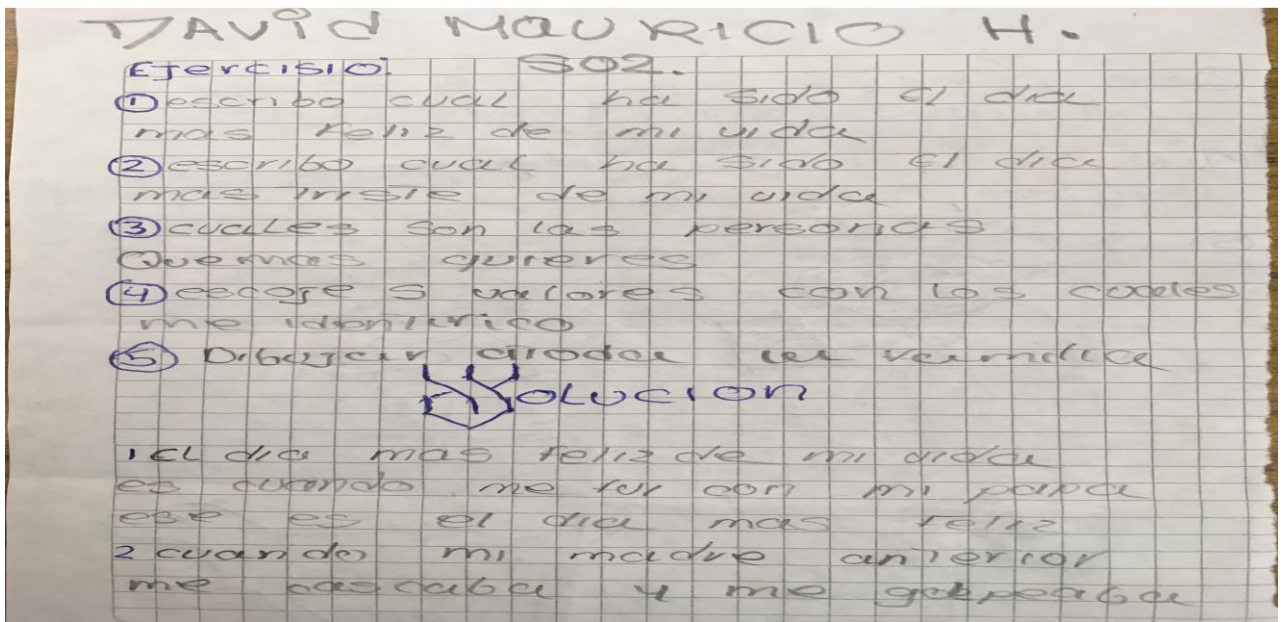 DAVid MaURICIO H.
Ejercisio 502.
① escribo cual ha sido el dia
mas feliz de mi vida
② escribo cual ha sido el dia
mas triste de mi vida
③ cuales son las personas
Que mas quieres
④ escoje 5 valores con los cuales
me identifico
⑤ Dibujar la
SOLUCION
1 El dia mas feliz de mi vida
es cuando me fui con mi papa
ese es el dia mas feliz
2 cuando mi madre anterior
me y me golpeaba